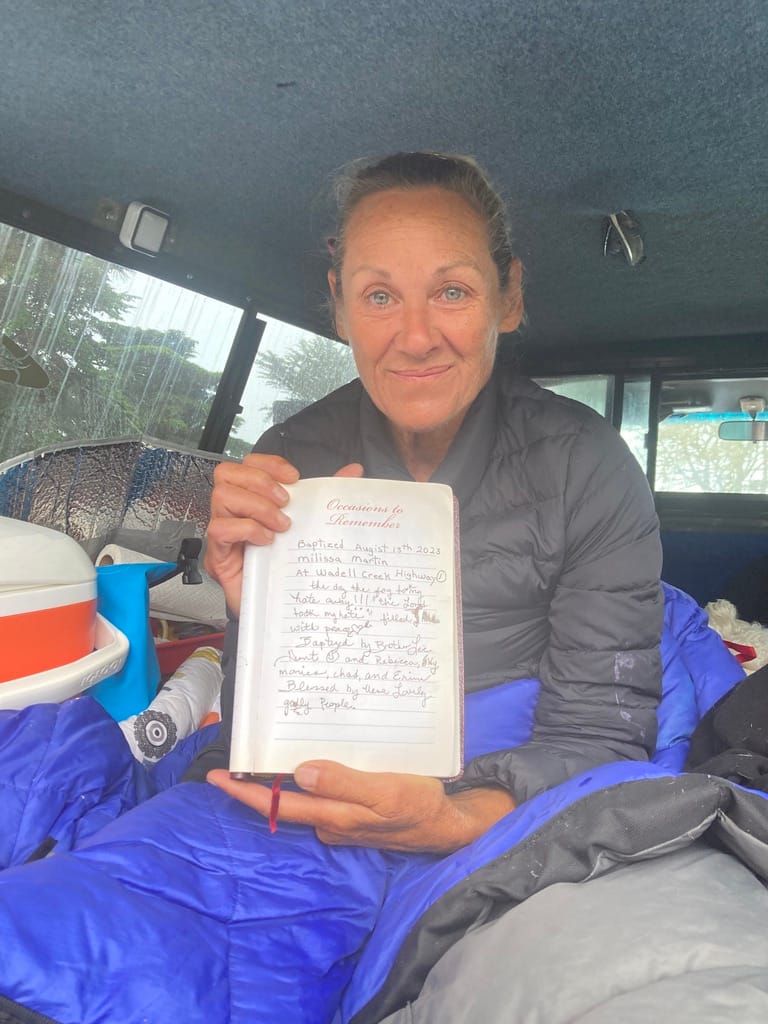 Occasions to
Remember
Baptized August 13th 2023
Milissa Martin
At Wadell Creek Highway 1
the day the joy to my
hate away!!! "the Lord
took my hate" filled
with peace
Baptized by Brother Lee
and Rebecca,
monica, chad, and Erin
Blessed by these Lovely
godly People.